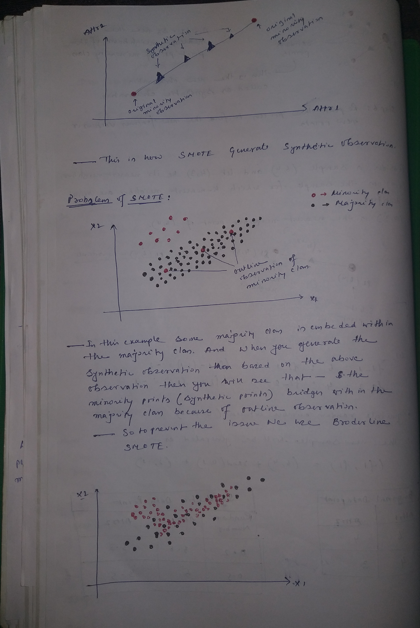 Attr2
Synthetic
observation
original
minority
observation
original
minority
observation
Attr1
— This is how SMOTE Generate Synthetic observation
Problem of SMOTE:
→ Minority clan
→ Majority clan
X2
outline
observation of
minority clan
X1
— In this example some majority clan is embeded within
the majority clan. And when you generate the
Synthetic observation then based on the above
observation then you will see that — the
minority points (synthetic points) bridges within the
majority clan because of outline observation.
— So to prevent the issue we use Broderline
SMOTE.
X2
X1